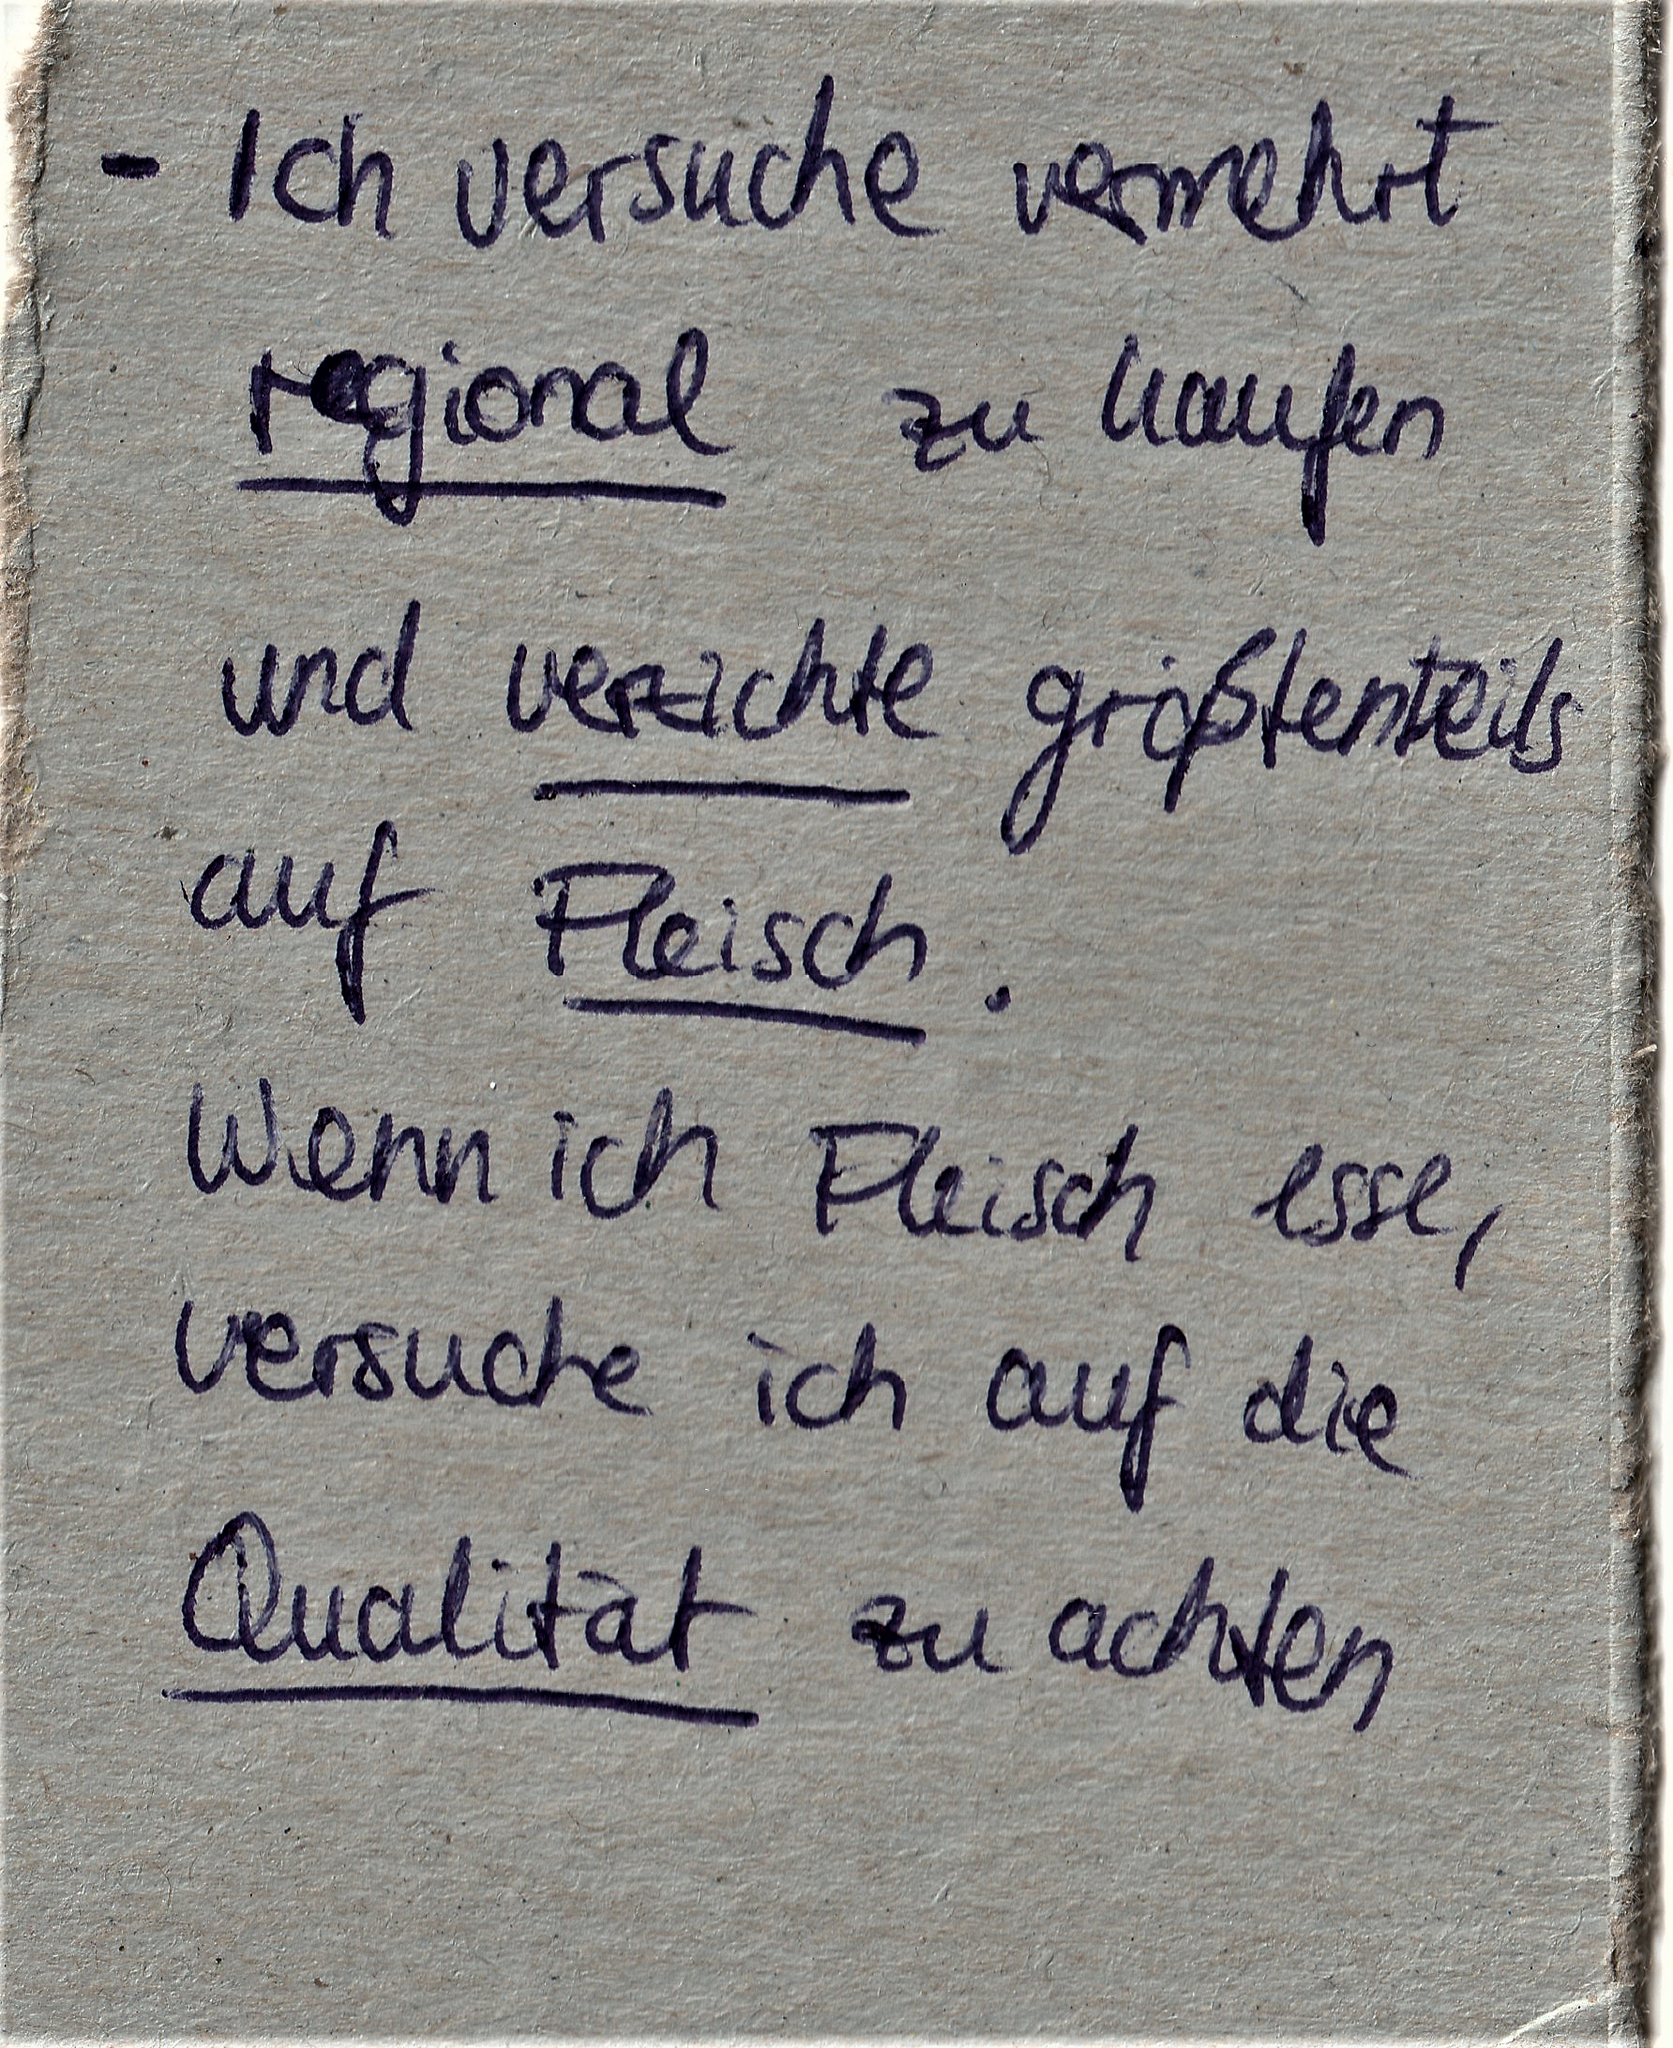 - Ich versuche vermehrt
regional zu kaufen
und verzichte größtenteils
auf Fleisch.
Wenn ich Fleisch esse,
versuche ich auf die
Qualität zu achten